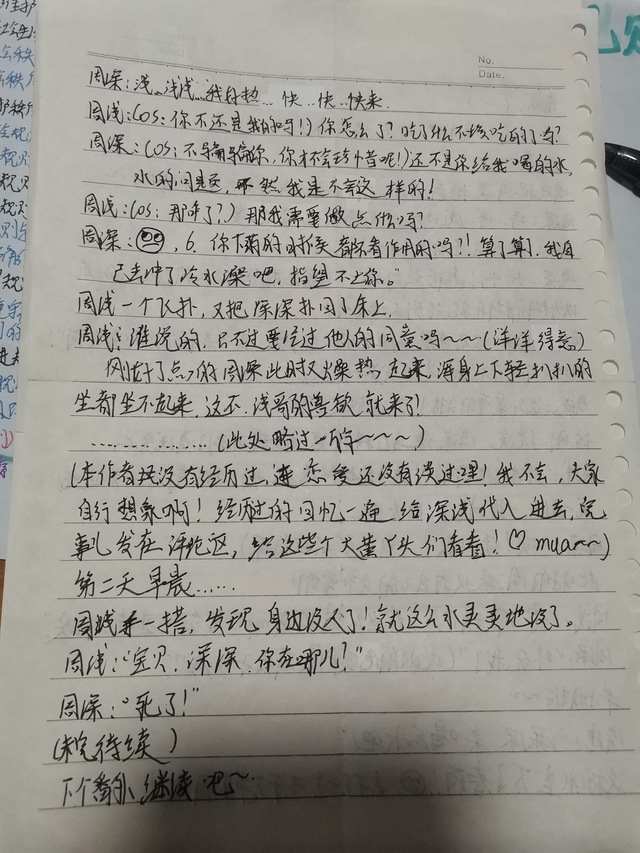 No.
Date.
周深:浅。浅浅…我好热…快…快…快来
周浅:(OS:你不还是我的吗!)你怎么了?吃了什么不该吃的了吗?
周深:(OS:不骗骗你,你才不会珍惜呢!)还不是你给我喝的水,
水的问题,不然我是不会这样的!
周浅:(OS:那咋了?)那我需要做点什么吗?
周深:6。你下药的时候都不看作用的吗?!算了算了,我自
己去冲个冷水澡吧,指望不上你。"
周浅一个飞扑,又把深深扑回了床上,
周浅:谁说的,只不过要经过他人的同意吗~~(洋洋得意)
刚好了点的周深此时又燥热起来,浑身上下轻飘飘的
坐都坐不起来,这不,浅哥的兽欲就来了!
………………(此处略过一万字~~~~)
(本作者孩没有经历过,连恋爱还没有谈过哩!我不会,大家
自行想象啊!经历过的回忆一遍,给深浅代入进去,完
事儿发在评论区,给这些个大黄丫头们看看!♡mua~~)
第二天早晨……
周浅手一搭,发现身边没人了!就这么水灵灵地没了。
周浅:"宝贝,深深,你在哪儿?"
周深:"死了!"
(未完待续)
下个番外继续吧~